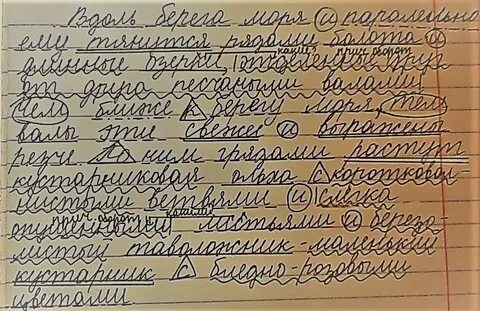 Вдоль берега моря и паралельно
ему тянутся рядами болота и
какие? прич. оборот
длинные озерки, отделенные друг
от друга песчаными валами.
Чем ближе к берегу моря, тем
валы эти свежее и выражены
резче. По ним грядами растут
кустарниковая ольха с коротковол-
нистыми ветвями и слегка
прич. оборот какими?
опушёнными листьями и берёзо-
листый таволожник-маленький
кустарник с бледно-розовыми
цветами.